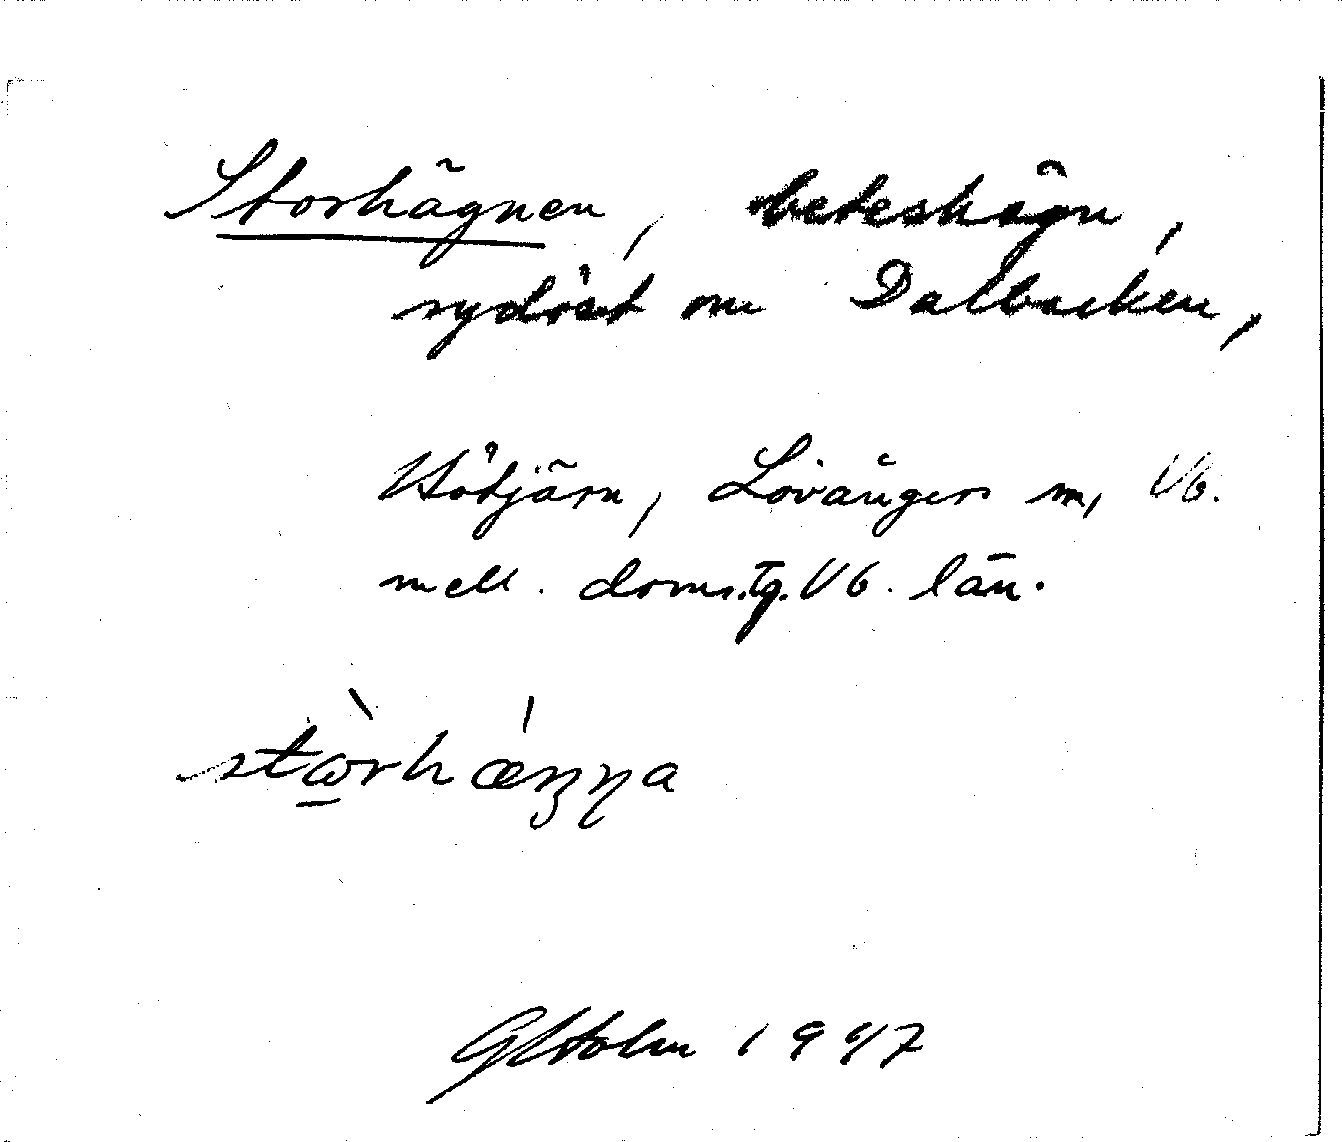 Storhägnen, beteshägn,
sydöst om Dalbacken,
Hötjärn, Lövångers sn, Vb.
mell. doms.tg. Vb. län.
stǫ̀rhǽŋŋa
GHolm 1947